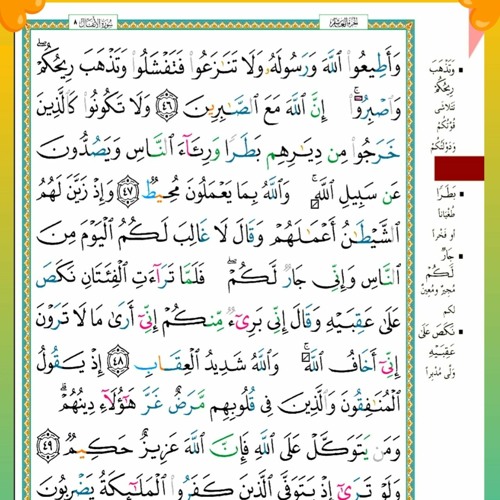 سُورَةُ الأَنفَال ٨
الجزء العاشر
وَأَطِيعُوا۟ ٱللَّهَ وَرَسُولَهُۥ وَلَا تَنَـٰزَعُوا۟ فَتَفْشَلُوا۟ وَتَذْهَبَ رِيحُكُمْ ۖ
وَٱصْبِرُوٓا۟ ۚ إِنَّ ٱللَّهَ مَعَ ٱلصَّـٰبِرِينَ ٤٦ وَلَا تَكُونُوا۟ كَٱلَّذِينَ
خَرَجُوا۟ مِن دِيَـٰرِهِم بَطَرًا وَرِئَآءَ ٱلنَّاسِ وَيَصُدُّونَ
عَن سَبِيلِ ٱللَّهِ ۚ وَٱللَّهُ بِمَا يَعْمَلُونَ مُحِيطٌ ٤٧ وَإِذْ زَيَّنَ لَهُمُ
ٱلشَّيْطَـٰنُ أَعْمَـٰلَهُمْ وَقَالَ لَا غَالِبَ لَكُمُ ٱلْيَوْمَ مِنَ
ٱلنَّاسِ وَإِنِّى جَارٌ لَّكُمْ ۖ فَلَمَّا تَرَآءَتِ ٱلْفِئَتَانِ نَكَصَ
عَلَىٰ عَقِبَيْهِ وَقَالَ إِنِّى بَرِىٓءٌ مِّنكُمْ إِنِّىٓ أَرَىٰ مَا لَا تَرَوْنَ
إِنِّىٓ أَخَافُ ٱللَّهَ ۚ وَٱللَّهُ شَدِيدُ ٱلْعِقَابِ ٤٨ إِذْ يَقُولُ
ٱلْمُنَـٰفِقُونَ وَٱلَّذِينَ فِى قُلُوبِهِم مَّرَضٌ غَرَّ هَـٰٓؤُلَآءِ دِينُهُمْ ۗ
وَمَن يَتَوَكَّلْ عَلَى ٱللَّهِ فَإِنَّ ٱللَّهَ عَزِيزٌ حَكِيمٌ ٤٩
وَلَوْ تَرَىٰٓ إِذْ يَتَوَفَّى ٱلَّذِينَ كَفَرُوا۟ ٱلْمَلَـٰٓئِكَةُ يَضْرِبُونَ
وَتَذْهَبَ
رِيحُكُمْ
تَتَلَاشَى
قُوَّتُكُمْ
وَدَوْلَتُكُمْ
بَطَرًا
طُغْيَانًا
أو فَخْرًا
جَارٌ
لَّكُمْ
مُجِيرٌ وَمُعِينٌ
لكم
نَكَصَ عَلَىٰ
عَقِبَيْهِ
وَلَّى مُدْبِرًا